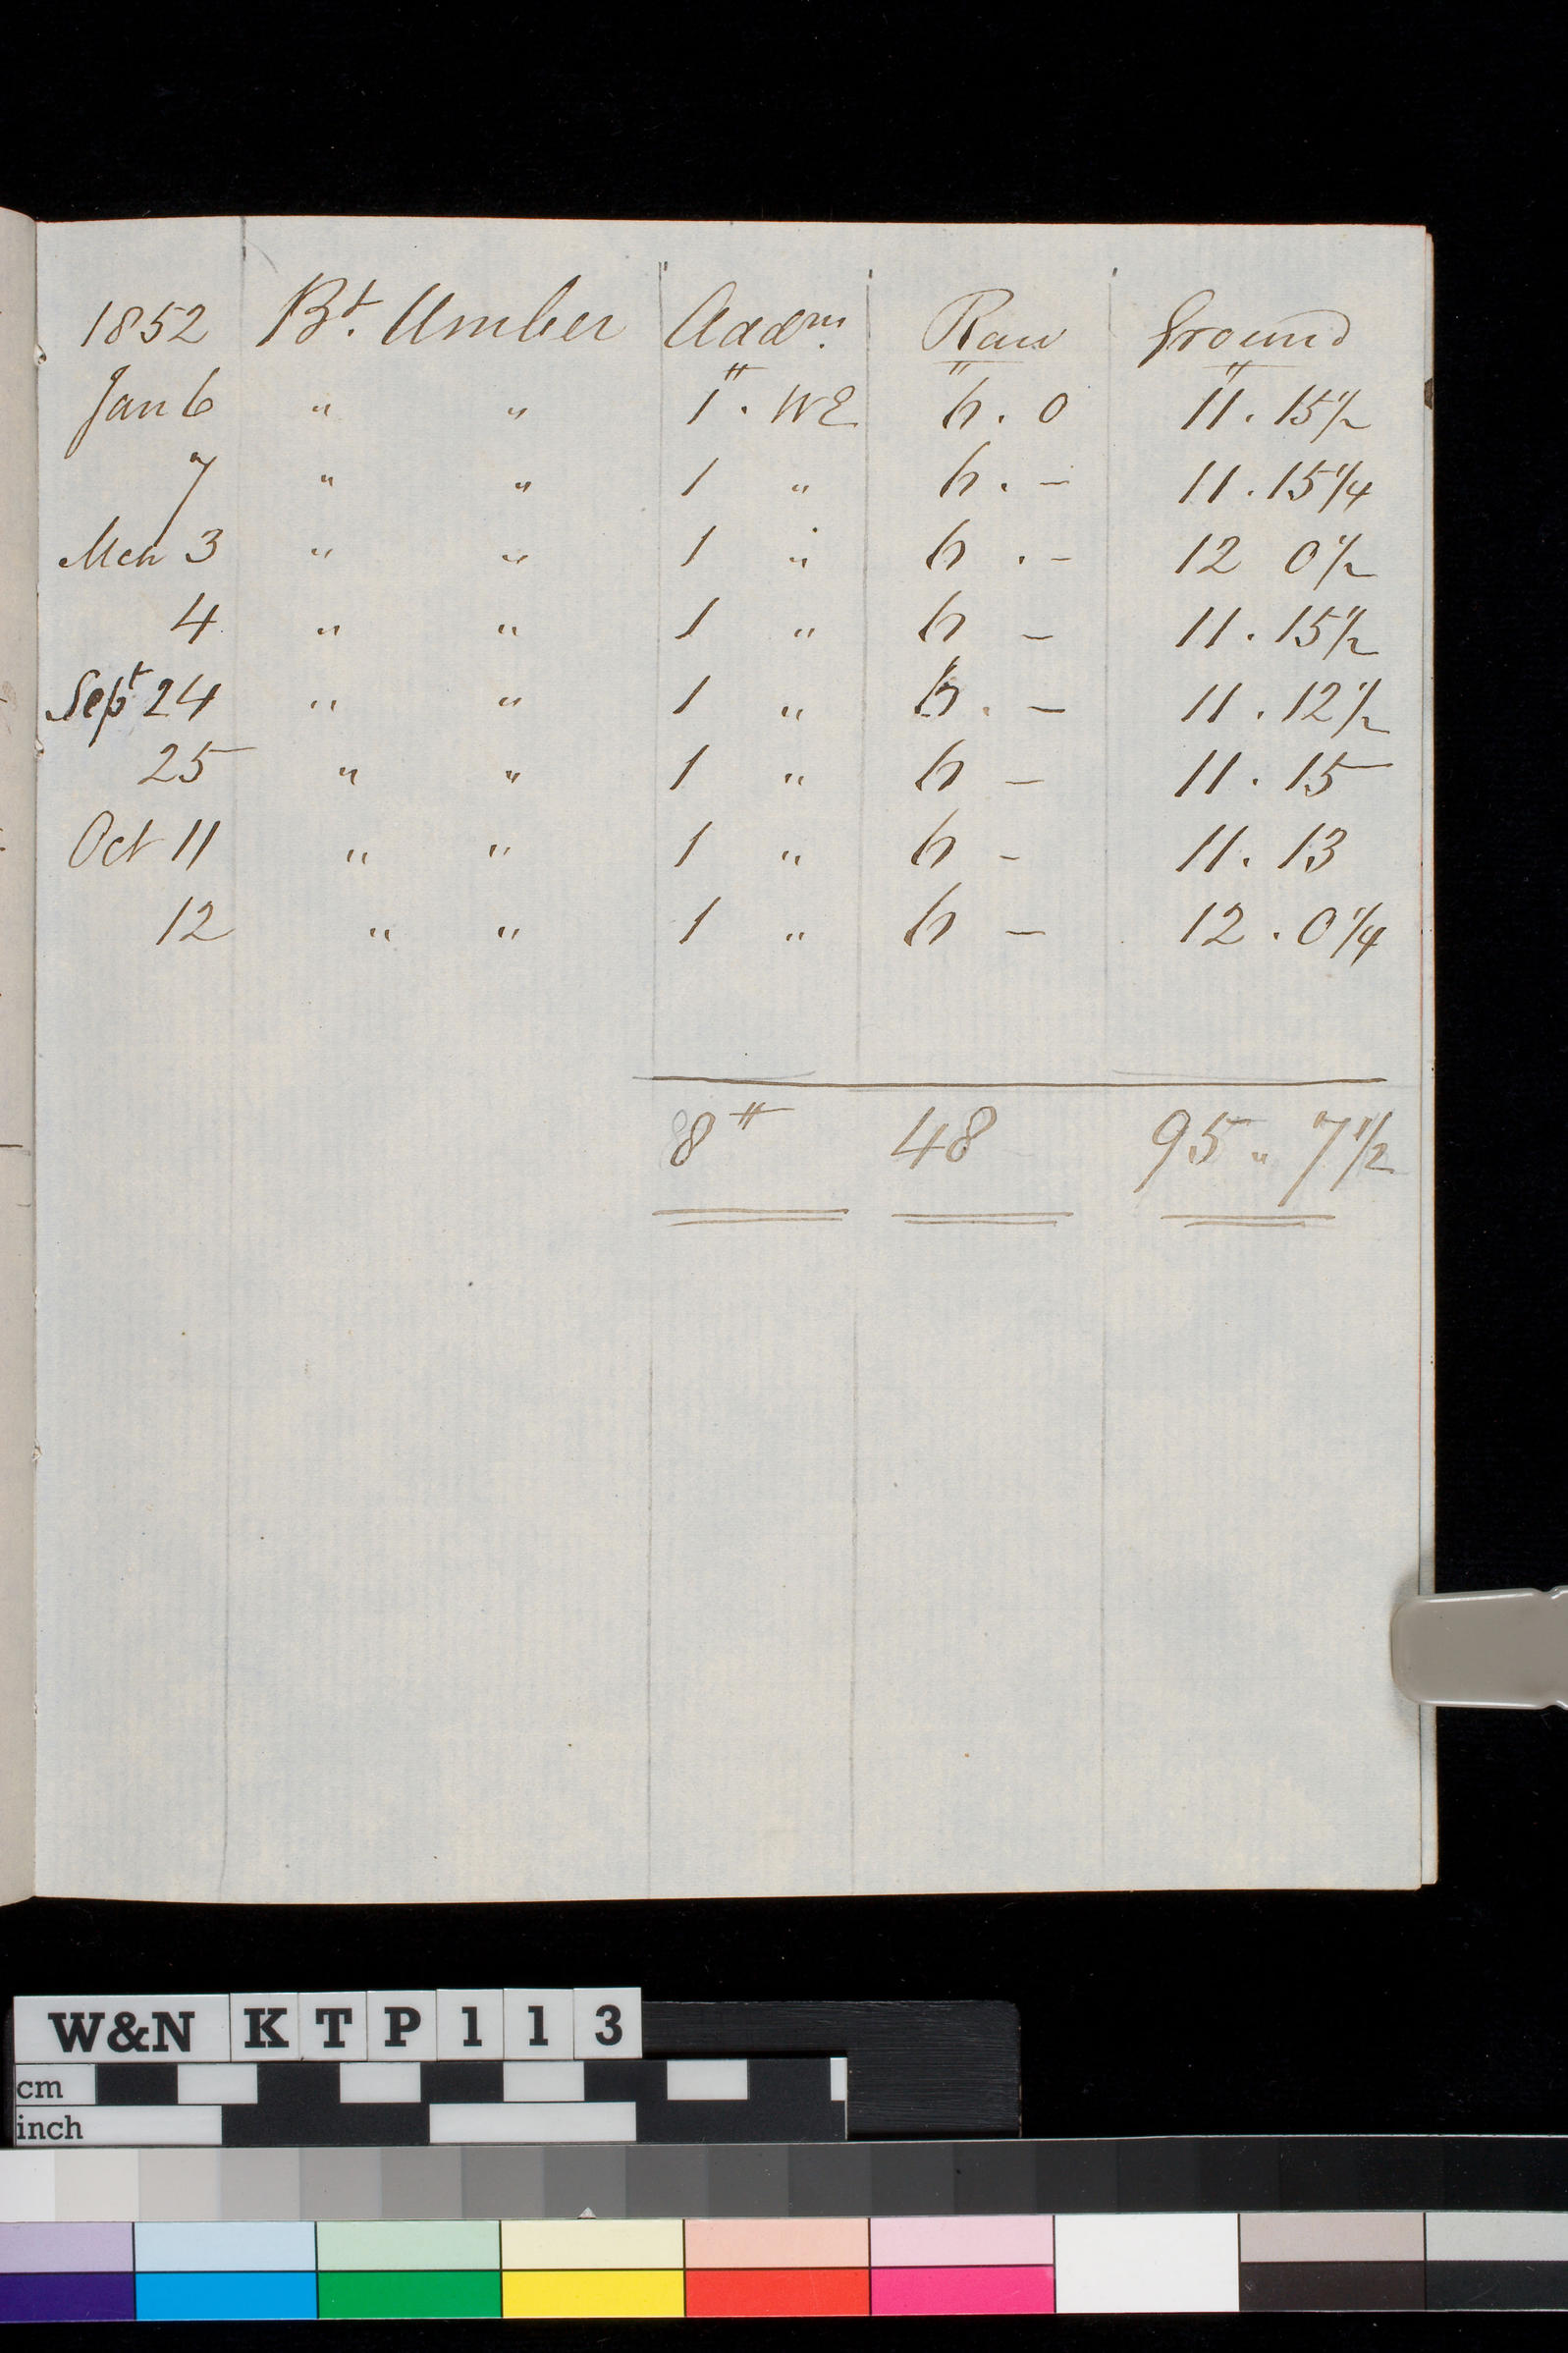 1852 Bt. Umber Addn. Raw Ground
Jan 6 " " 1 . WE 6 . 0 11 . 15 1/2
7 " " 1 " 6 . – 11 . 15 1/4
Mch 3 " " 1 " 6 . – 12 0 1/2
4 " " 1 " 6 – 11 . 15 1/2
Sept 24 " " 1 " 6 . – 11 . 12 1/2
25 " " 1 " 6 – 11 . 15
Oct 11 " " 1 " 6 – 11 . 13
12 " " 1 " 6 – 12 . 0 1/4
8 # 48 95 " 7 1/2
W&N KTP113
cm
inch